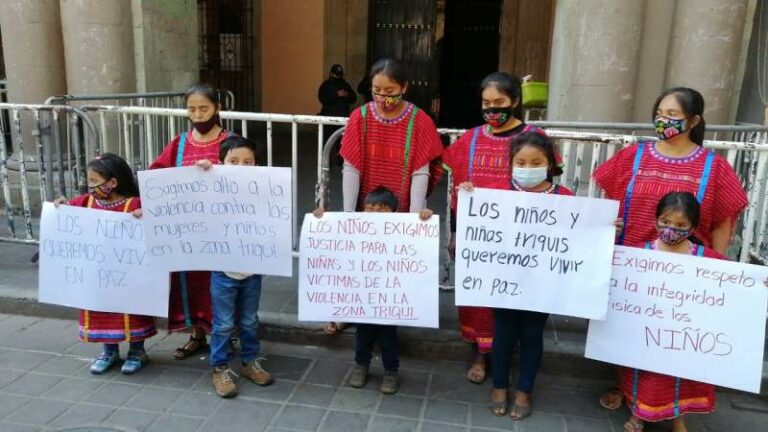 LOS NIÑO
QUEREMOS VIV
EN PAZ
Exigimos alto a la
violencia contra las
mujeres y niños
en la zona triqui
EXIGIMOS
JUSTICIA PARA LAS
NIÑAS Y LOS NIÑOS
VÍCTIMAS DE LA
VIOLENCIA EN LA
ZONA TRIQUI
Los niños y
niñas triquis
queremos vivir
en paz.
Exigimos respeto
a la integridad
ísica de los
NIÑOS